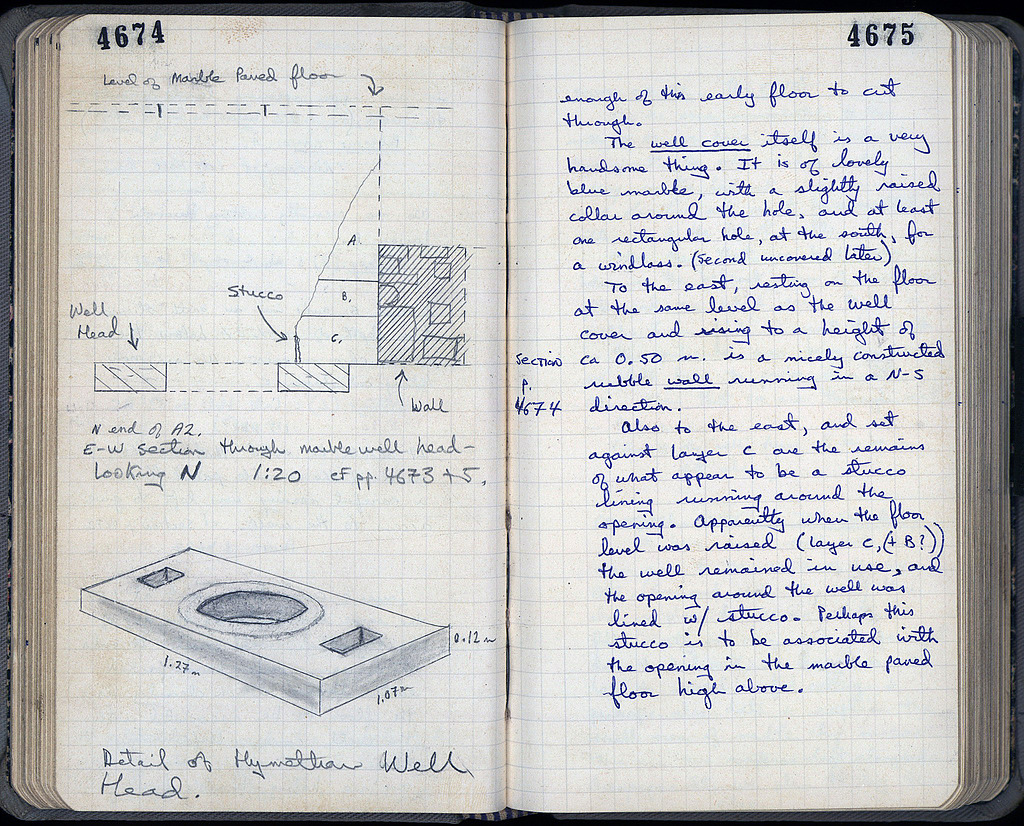 4674
Level of Marble Paved floor
A.
B.
C.
Stucco
Well
Head
Wall
N end of A2.
E-W Section through marble well head-
Looking N 1:20 cf pp. 4673 + 5.
0.12 m
1.27 m
1.07 m
Detail of Hymettian Well
Head.
4675
enough of this early floor to cut
through.
The well cover itself is a very
handsome thing. It is of lovely
blue marble, with a slightly raised
collar around the hole, and at least
one rectangular hole, at the south, for
a windlass. (second uncovered later)
To the east, resting on the floor
at the same level as the well
cover and rising to a height of
Section
p.
4674
ca 0.50 m. is a nicely constructed
rubble wall running in a N-S
direction.
Also to the east, and set
against layer C are the remains
of what appear to be a stucco
lining running around the
opening. Apparently when the floor
level was raised (layer C, (+ B?))
the well remained in use, and
the opening around the well was
lined w/ stucco. Perhaps this
stucco is to be associated with
the opening in the marble paved
floor high above.